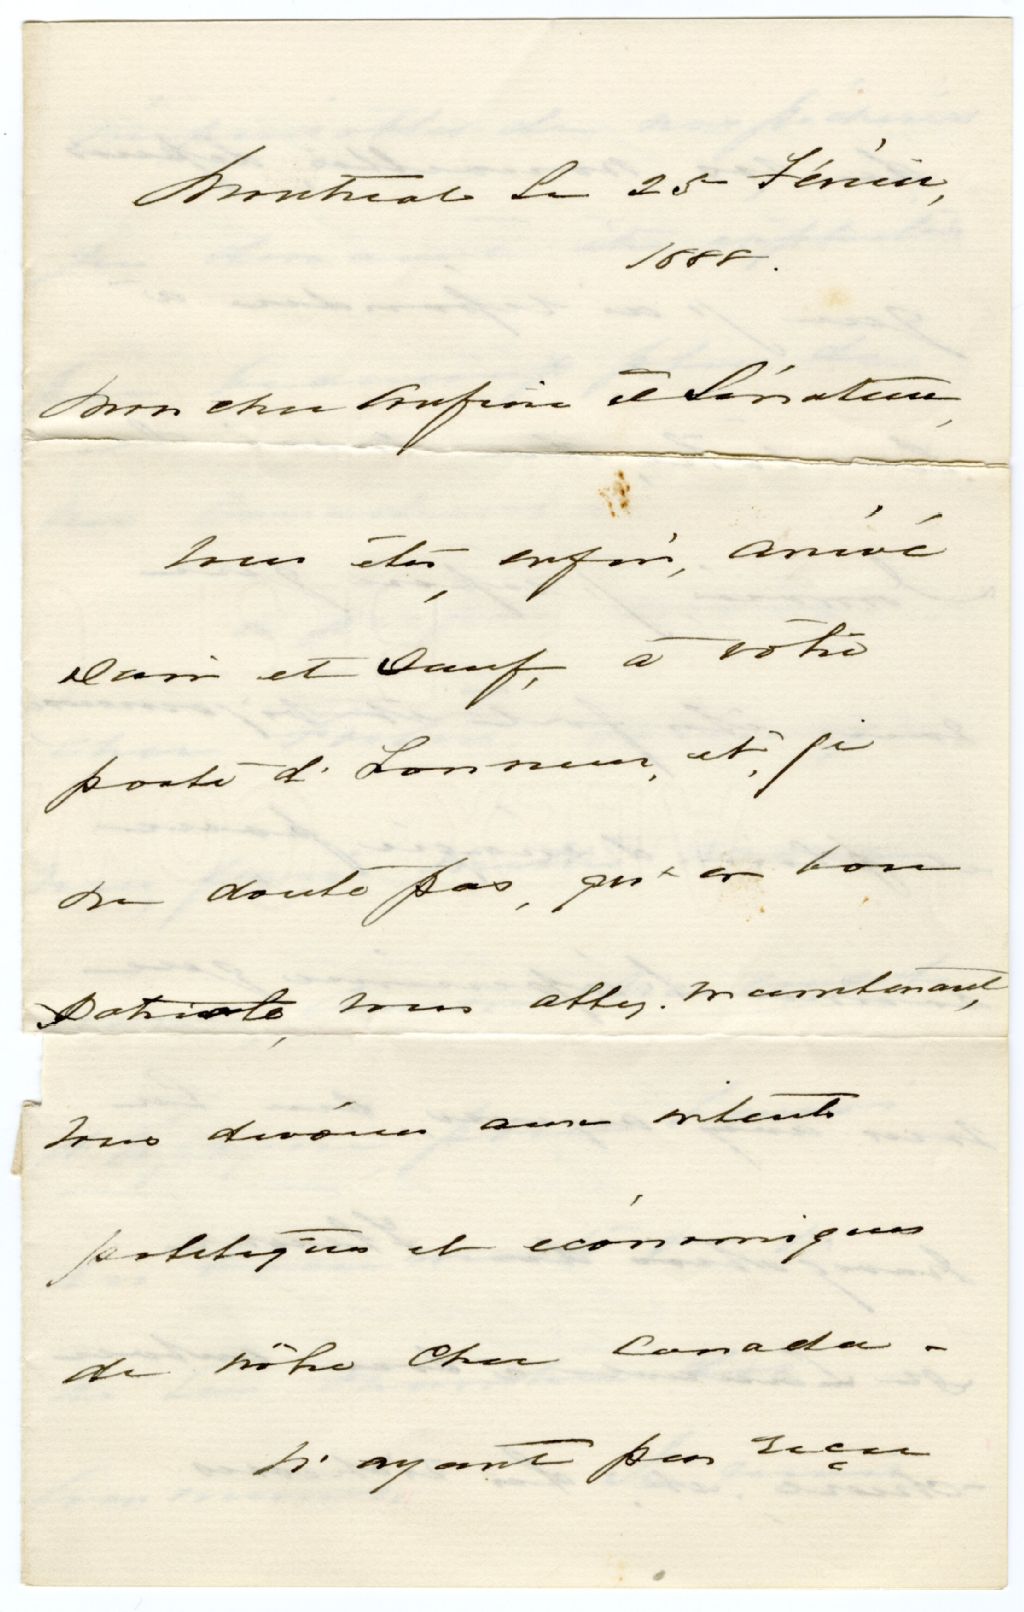 Montreal le 25 Février,
1888.
Mon cher confrère et Sénateur,
Vous êtes, enfin, arrivé
Sain et Sauf, à vôtre
poste d'honneur, et, je
ne doute pas, qu'en bon
Patriote, vous allez maintenant,
vous dévouer aux intérêts
politiques et économiques
de nôtre cher Canada -
N'ayant pas reçu